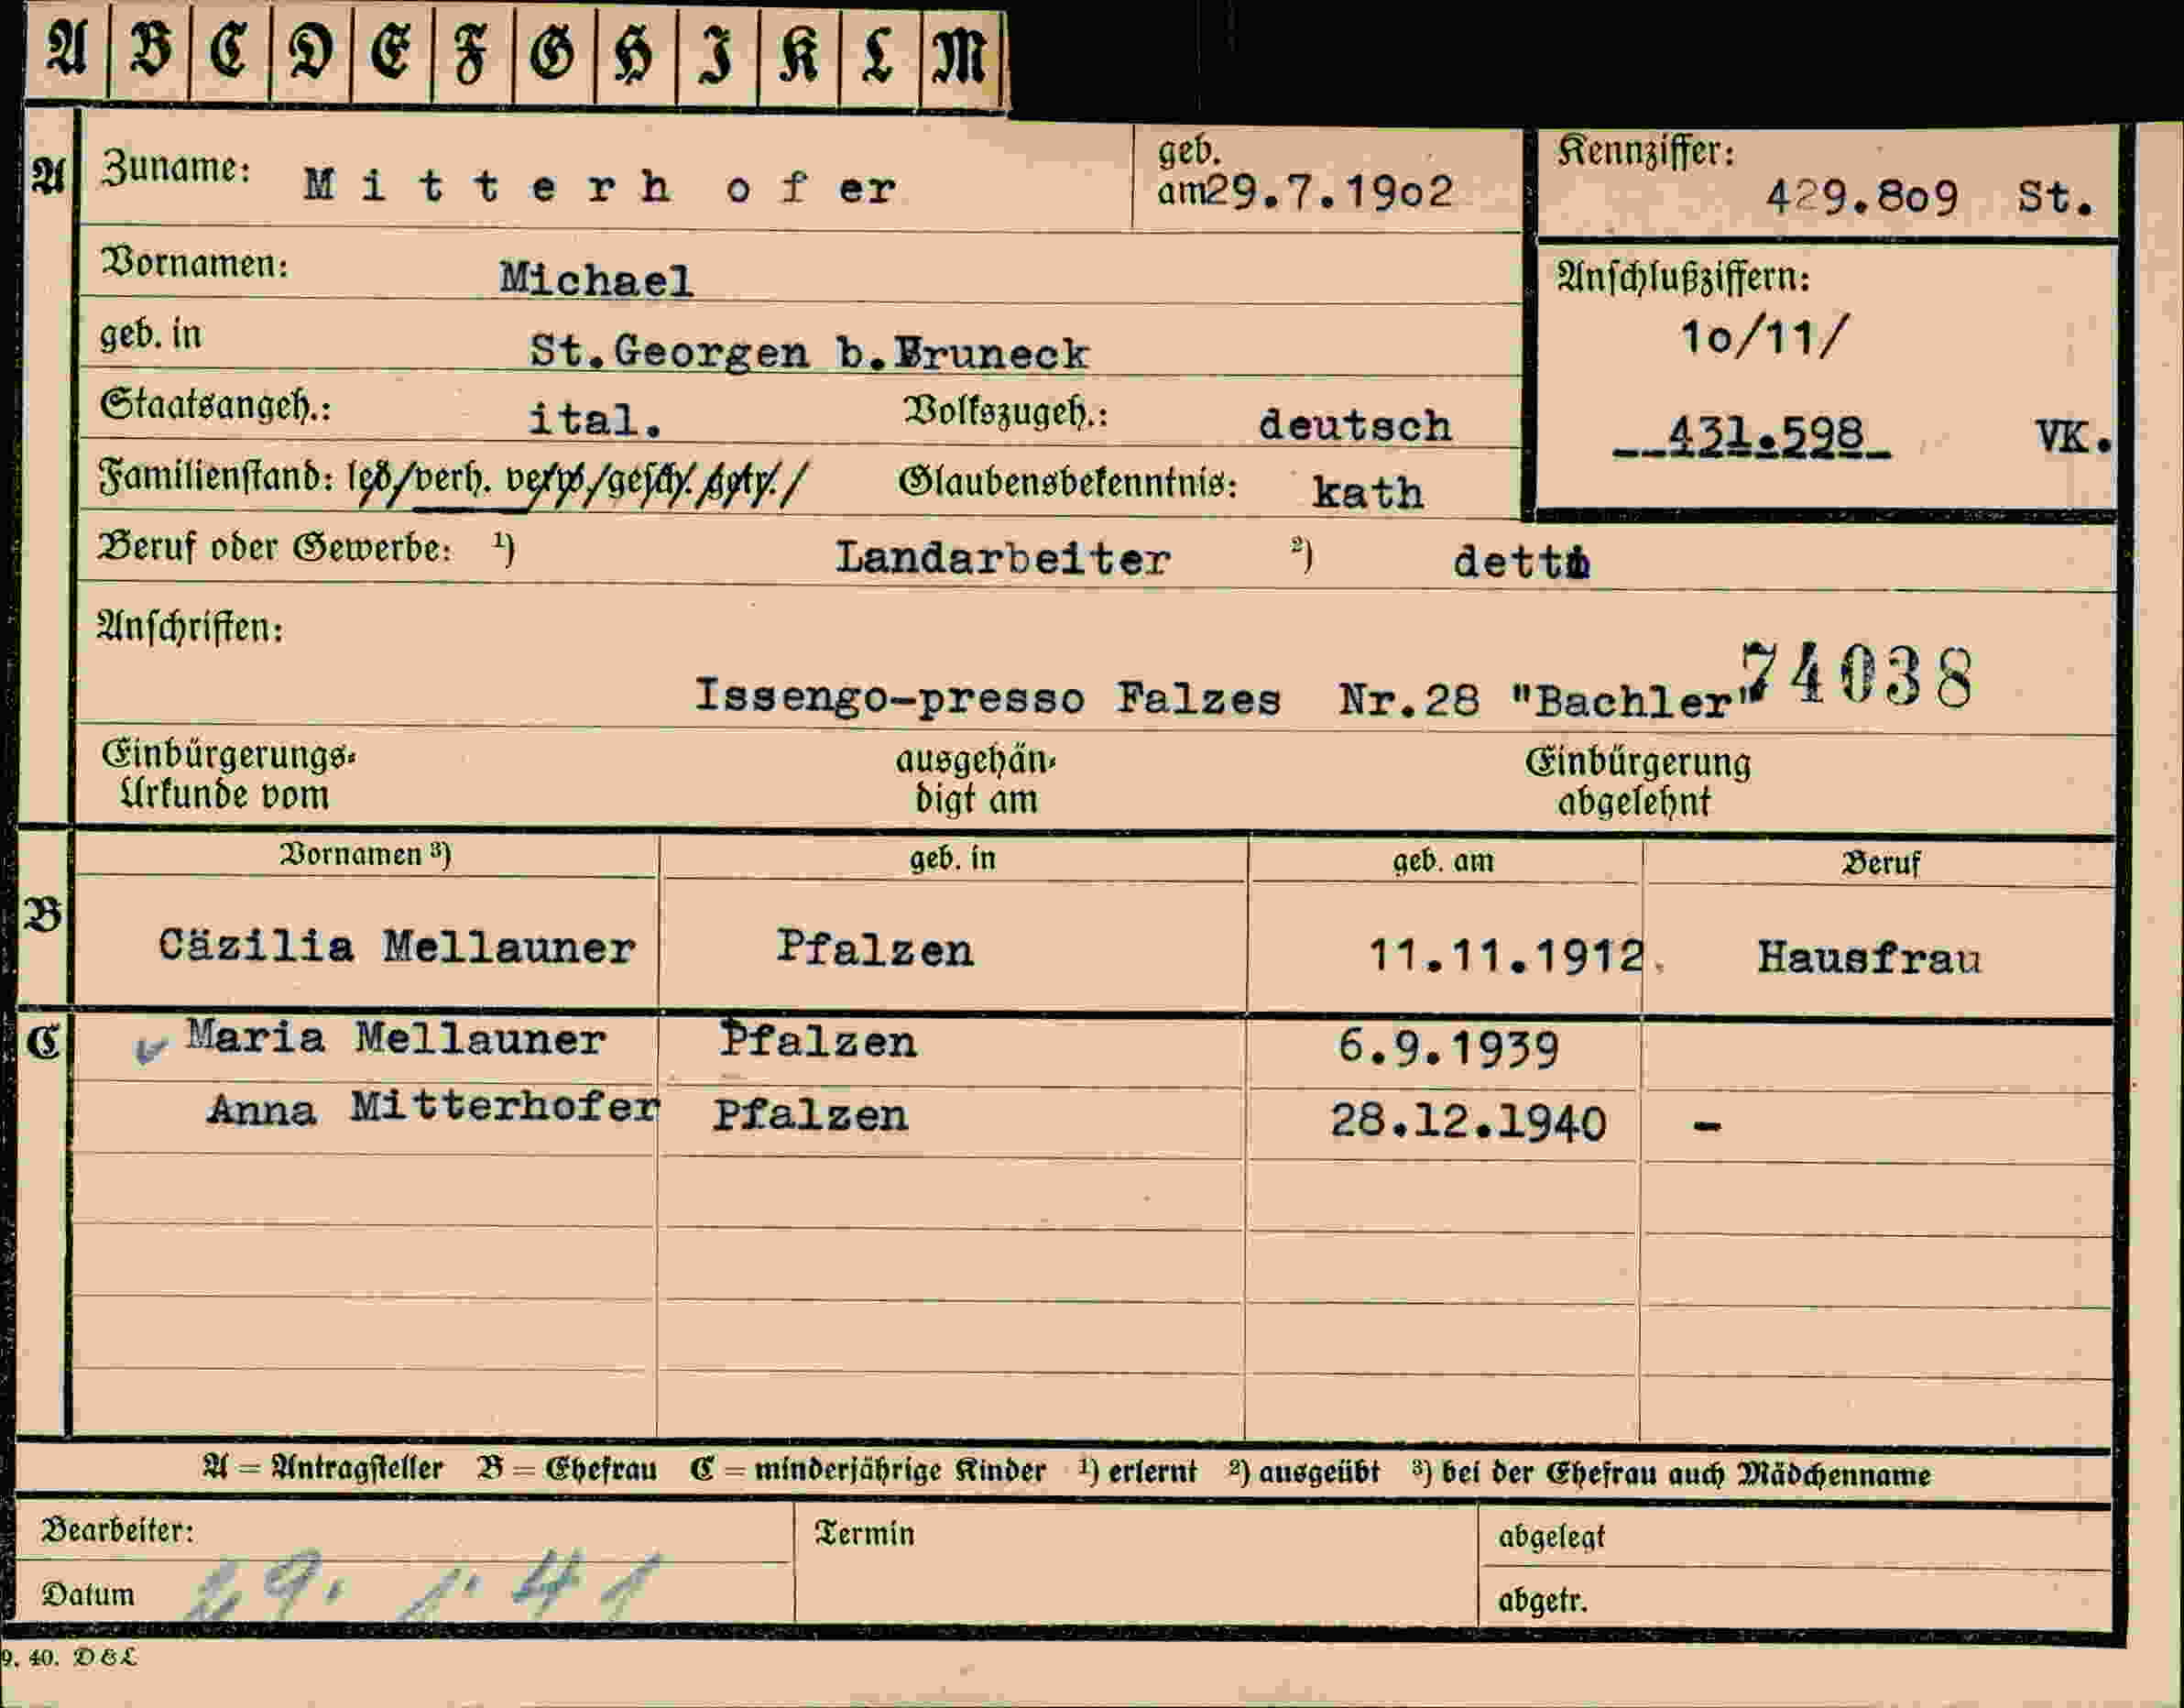 A B C D E F G H I K L M
A Zuname: Mitterhofer geb. am 29.7.19o2 Kennziffer: 429.8o9 St.
Vornamen: Michael Anschlußziffern:
geb. in St.Georgen b.Bruneck 1o/11/
Staatsangeh.: ital. Volkszugeh.: deutsch 431.598 VK.
Familienstand: led/verh. verw/gesch. getr./ Glaubensbekenntnis: kath
Beruf oder Gewerbe: 1) Landarbeiter 2) detto
Anschriften:
Issengo-presso Falzes Nr.28 "Bachler" 74038
Einbürgerungs- ausgehän- Einbürgerung
Urkunde vom digt am abgelehnt
Vornamen 3) geb. in geb. am Beruf
B Cäzilia Mellauner Pfalzen 11.11.1912. Hausfrau
C Maria Mellauner Pfalzen 6.9.1939
Anna Mitterhofer Pfalzen 28.12.1940 -
A = Antragsteller B = Ehefrau C = minderjährige Kinder 1) erlernt 2) ausgeübt 3) bei der Ehefrau auch Mädchenname
Bearbeiter: Termin abgelegt
Datum 29. 1. 41 abgetr.
9. 40. D&L